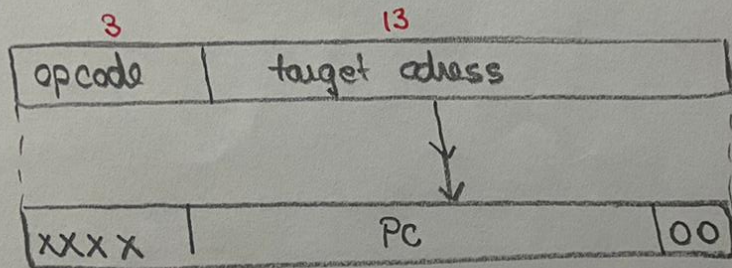 3 13
opcode target adress
XXXX PC 00